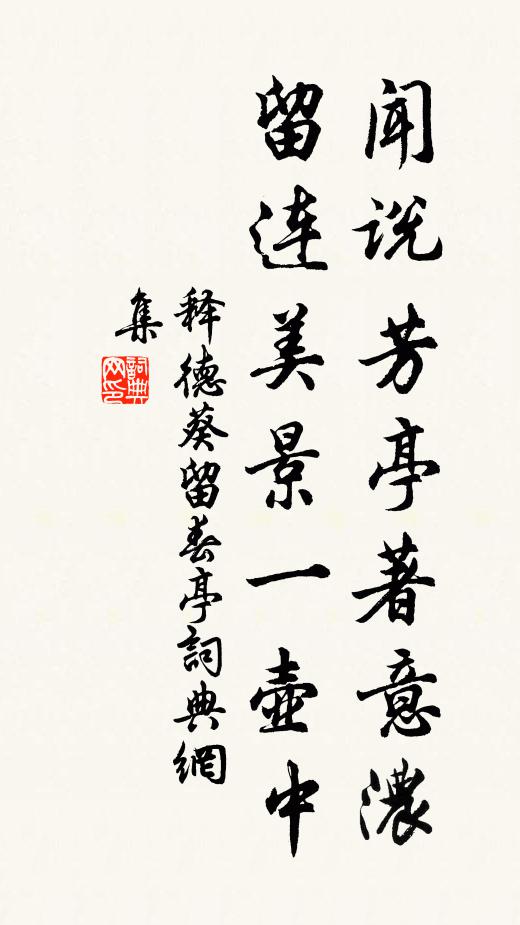 闻说芳亭著意濃
留连美景一壶中
释德葵留春亭詞典網
集
詞典
网印